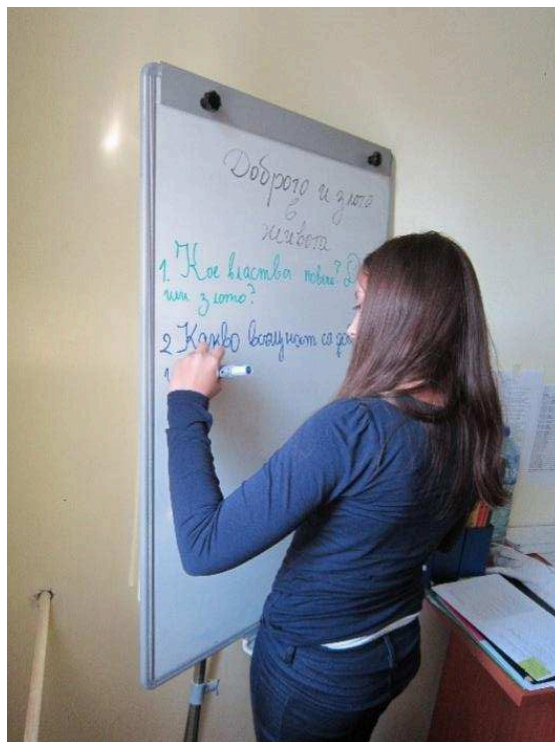 Доброто и злото
в
живота
1. Кое властва повече?
или злото?
2 Какво всъщност са